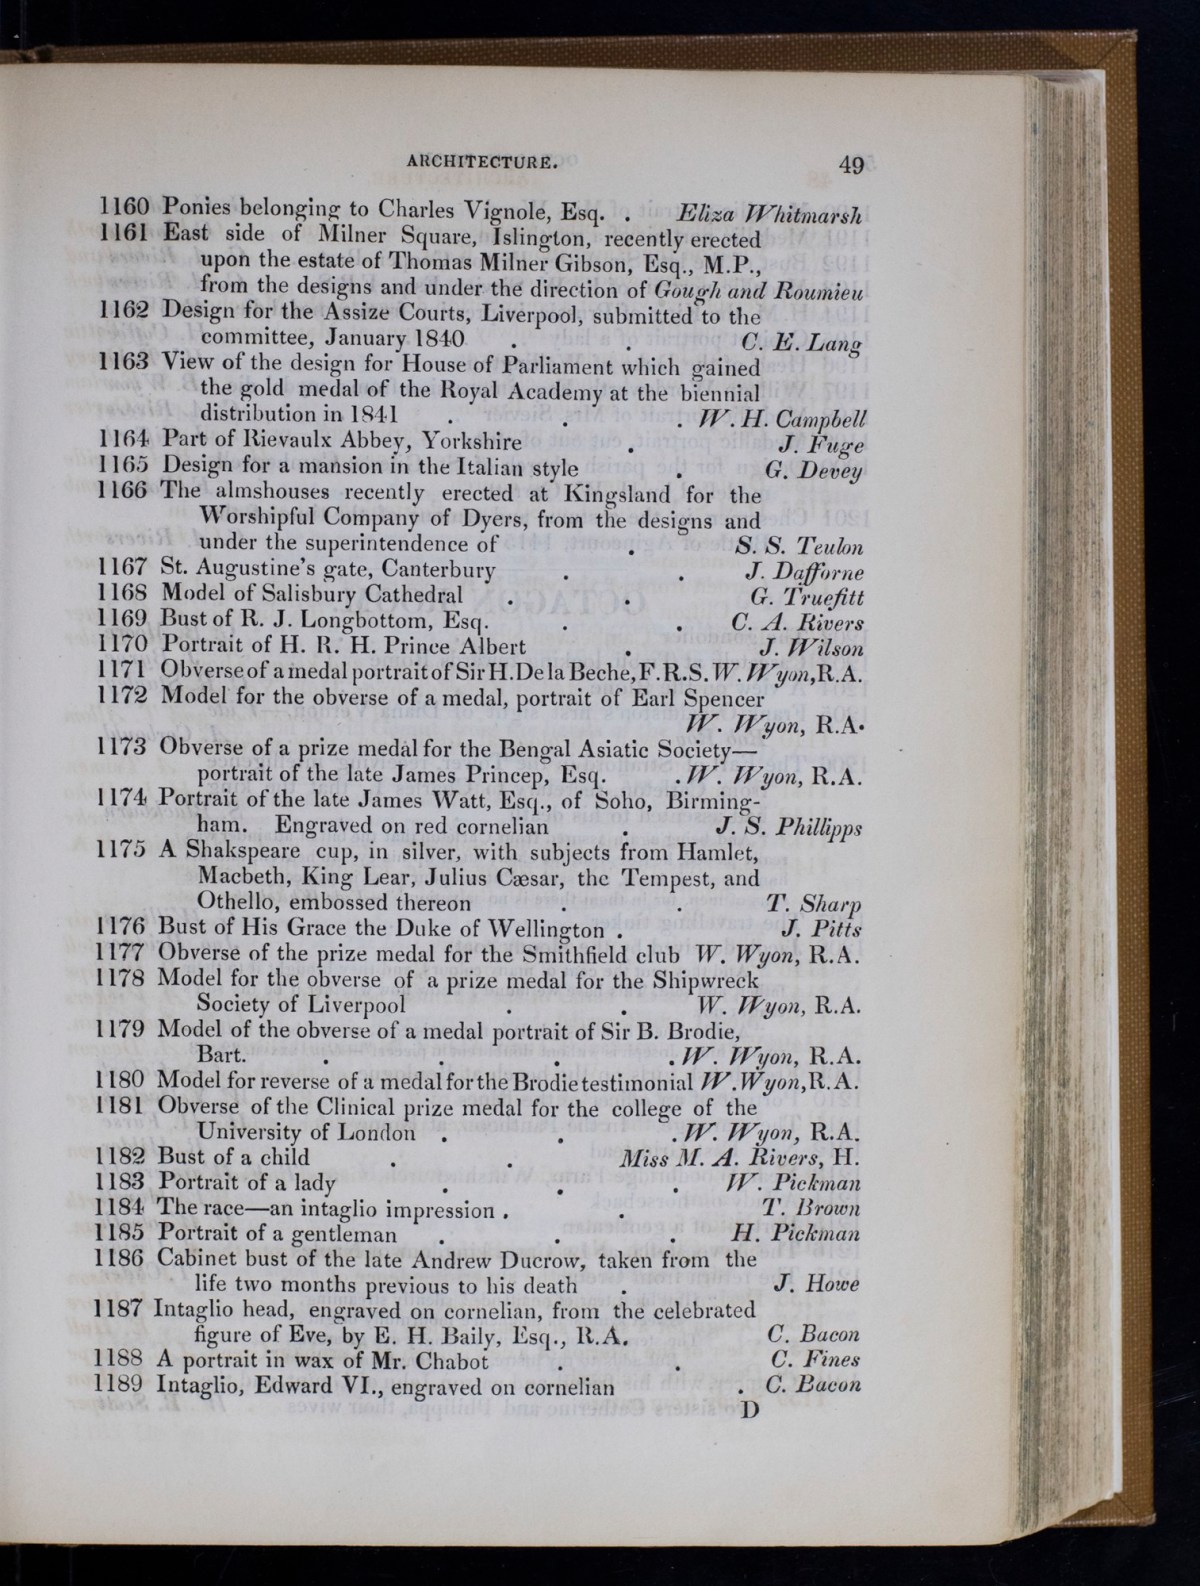 ARCHITECTURE. 49
1160 Ponies belonging to Charles Vignole, Esq. . Eliza Whitmarsh
1161 East side of Milner Square, Islington, recently erected
upon the estate of Thomas Milner Gibson, Esq., M.P.,
from the designs and under the direction of Gough and Roumieu
1162 Design for the Assize Courts, Liverpool, submitted to the
committee, January 1840 . . C. E. Lang
1163 View of the design for House of Parliament which gained
the gold medal of the Royal Academy at the biennial
distribution in 1841 . . . W. H. Campbell
1164 Part of Rievaulx Abbey, Yorkshire . J. Fuge
1165 Design for a mansion in the Italian style . G. Devey
1166 The almshouses recently erected at Kingsland for the
Worshipful Company of Dyers, from the designs and
under the superintendence of . S. S. Teulon
1167 St. Augustine's gate, Canterbury . . J. Dafforne
1168 Model of Salisbury Cathedral . . G. Truefitt
1169 Bust of R. J. Longbottom, Esq. . . C. A. Rivers
1170 Portrait of H. R. H. Prince Albert . J. Wilson
1171 Obverse of a medal portrait of Sir H. De la Beche, F.R.S. W. Wyon, R.A.
1172 Model for the obverse of a medal, portrait of Earl Spencer
W. Wyon, R.A.
1173 Obverse of a prize medal for the Bengal Asiatic Society—
portrait of the late James Princep, Esq. . W. Wyon, R.A.
1174 Portrait of the late James Watt, Esq., of Soho, Birming-
ham. Engraved on red cornelian . J. S. Phillipps
1175 A Shakspeare cup, in silver, with subjects from Hamlet,
Macbeth, King Lear, Julius Cæsar, the Tempest, and
Othello, embossed thereon . . T. Sharp
1176 Bust of His Grace the Duke of Wellington . J. Pitts
1177 Obverse of the prize medal for the Smithfield club W. Wyon, R.A.
1178 Model for the obverse of a prize medal for the Shipwreck
Society of Liverpool . . W. Wyon, R.A.
1179 Model of the obverse of a medal portrait of Sir B. Brodie,
Bart. . . . . W. Wyon, R.A.
1180 Model for reverse of a medal for the Brodie testimonial W. Wyon, R.A.
1181 Obverse of the Clinical prize medal for the college of the
University of London . . . W. Wyon, R.A.
1182 Bust of a child . . Miss M. A. Rivers, H.
1183 Portrait of a lady . . . W. Pickman
1184 The race—an intaglio impression . . T. Brown
1185 Portrait of a gentleman . . . H. Pickman
1186 Cabinet bust of the late Andrew Ducrow, taken from the
life two months previous to his death . J. Howe
1187 Intaglio head, engraved on cornelian, from the celebrated
figure of Eve, by E. H. Baily, Esq., R.A. C. Bacon
1188 A portrait in wax of Mr. Chabot . . C. Fines
1189 Intaglio, Edward VI., engraved on cornelian . C. Bacon
D